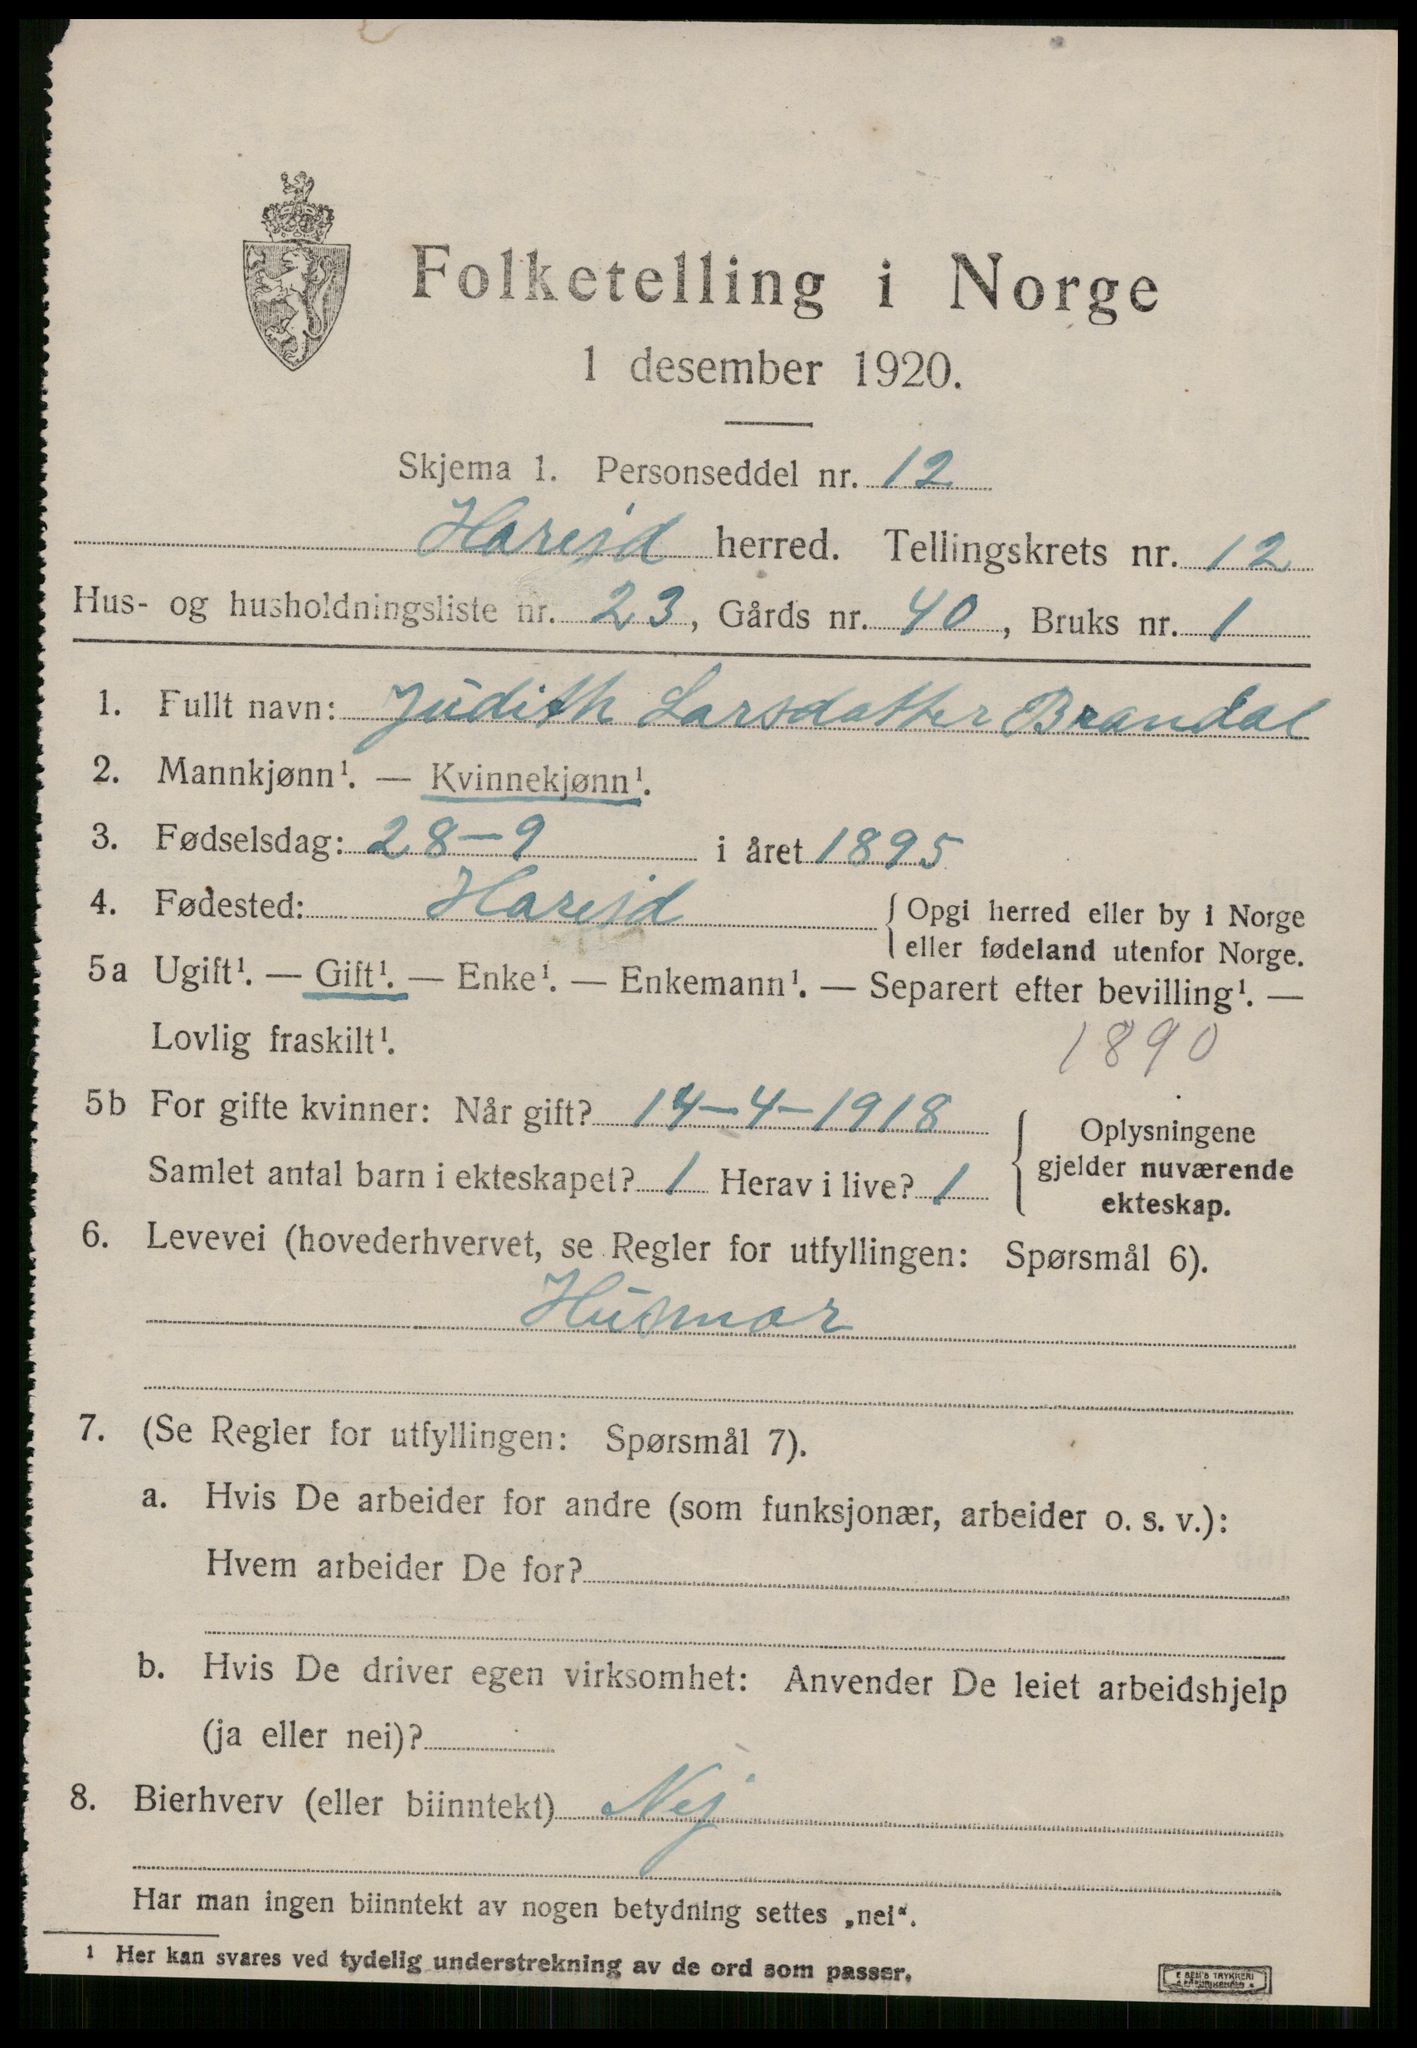 Folketelling i Norge
1 desember 1920.
Skjema 1. Personseddel nr. 12
Hareid herred. Tellingskrets nr. 12
Hus- og husholdningsliste nr. 23, Gårds nr. 40, Bruks nr. 1
1. Fullt navn: Judith Larsdatter Brandal
2. Mannkjønn¹. — Kvinnekjønn¹.
3. Fødselsdag: 28-9 i året 1895
4. Fødested: Hareid { Opgi herred eller by i Norge
eller fødeland utenfor Norge.
5a Ugift¹. — Gift¹. — Enke¹. — Enkemann¹. — Separert efter bevilling¹. —
Lovlig fraskilt¹. 1890
5b For gifte kvinner: Når gift? 14-4-1918
Samlet antal barn i ekteskapet? 1 Herav i live? 1
{ Oplysningene
gjelder nuværende
ekteskap.
6. Levevei (hovederhvervet, se Regler for utfyllingen: Spørsmål 6).
Husmor
7. (Se Regler for utfyllingen: Spørsmål 7).
a. Hvis De arbeider for andre (som funksjonær, arbeider o. s. v.):
Hvem arbeider De for?
b. Hvis De driver egen virksomhet: Anvender De leiet arbeidshjelp
(ja eller nei)?
8. Bierhverv (eller biinntekt) Nej
Har man ingen biinntekt av nogen betydning settes „nei“.
¹ Her kan svares ved tydelig understrekning av de ord som passer.